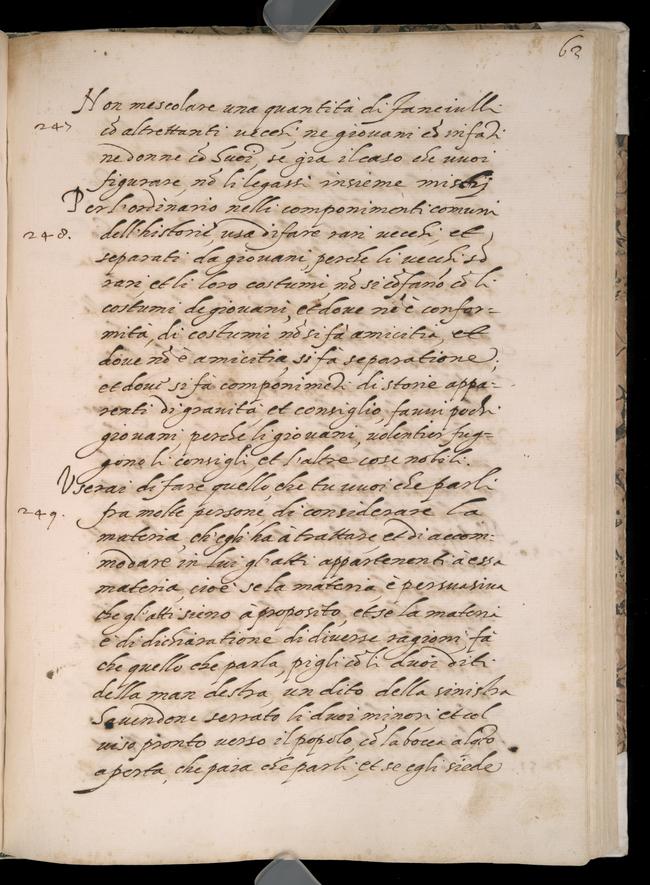 62
Non mescolare una quantità di fanciulli
247
cō altrettanti vecchi ne giovani cō infāti
ne donne cō huoī, se gia il caso che vuoi
figurare, nō li legassi insieme mistij
Per l'ordinario nelli componimenti comuni
248.
dell'historie, usa di fare rari vecchi, et
separati da giovani, perche li vecchi sō
rari, et li loro costumi nō si cōfano cō li
costumi de giovani, et dove nō è confor=
mità, di costumi nō si fà amicitia, et
dove nō è amicitia si fà separatione,
et dove si fà componimēti di storie appa=
renti di gravità et consiglio, favvi pochi
giovani, perche li giovani, volentier fug=
gono li consigli et l'altre cose nobili.
Userai di fare quello, che tu vuoi che parli
249.
fra molte persone, di considerare la
materia, ch'egli hà à trattare et di accom=
modare, in lui gl'atti appartenenti à essa
materia, cioè se la materia, è persuasiva
che gl'atti sieno à proposito, et se la materia
è di dichiaratione di diverse ragioni, fà
che quello che parla, pigli cō li duoi diti
della man destra un dito della sinistra
havendone serrato li duoi minori et col
viso pronto verso il popolo, cō la bocca alqto
aperta, che paia che parli, et se egli siede